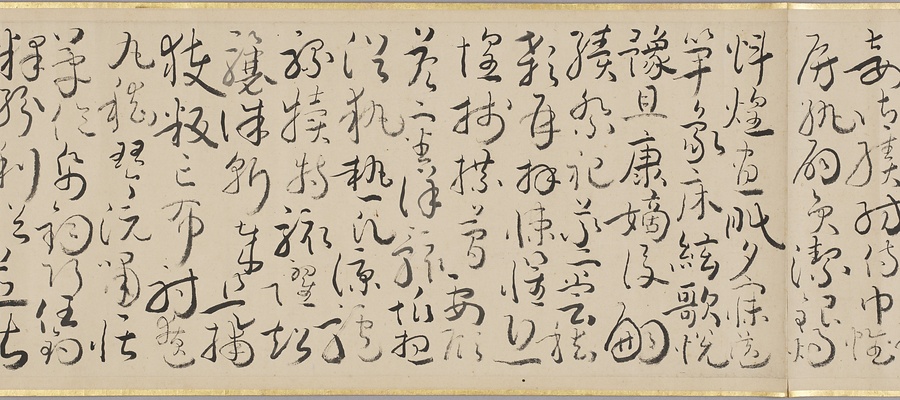 妾御績紡侍巾帷
房紈扇圓潔銀燭
煒煌晝眠夕寐藍
筍象床絃歌悅
豫且康嫡後嗣
續祭祀蒸嘗稽
顙再拜悚懼恐
惶牋牒簡要顧
答審詳骸垢想
浴執熱願涼驢
騾犢特駭躍超
驤誅斬賊盜捕
獲叛亡布射遼
丸嵇琴阮嘯恬
筆倫紙鈞巧任釣
釋紛利俗並皆